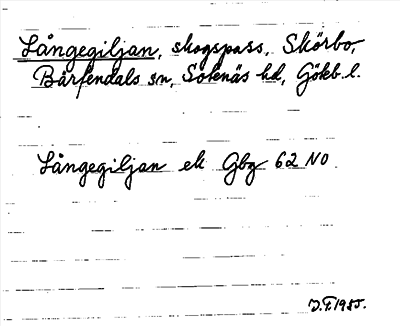 Långegiljan, skogspass, Skörbo,
Bärfendals sn, Sotenäs hd, Götеb. l.
Långegiljan ek Gbg 62 NO.
J.F. 1985.